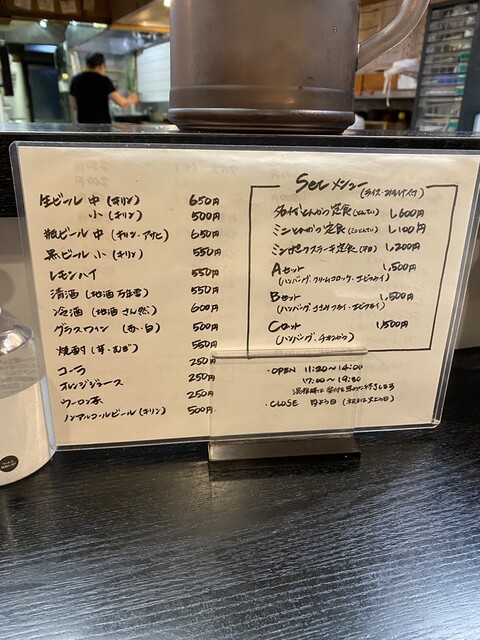 生ビール 中 (キリン) 650円
小 (キリン) 500円
瓶ビール 中 (キリン・アサヒ) 650円
黒ビール 小 (キリン) 550円
レモンハイ 550円
清酒 (地酒 550円
冷酒 (地酒 600円
グラスワイン (赤・白) 500円
焼酎 (芋・むぎ) 550円
コーラ 250円
オレンジジュース 250円
ウーロン茶 250円
ノンアルコールビール (キリン) 500円
Set メニュー
(ライス・おみそ汁付)
とんかつ定食 1,600円
ミニとんかつ定食 1,100円
ミンチポークステーキ定食 1,200円
Aセット 1,500円
(ハンバーグ・クリームコロッケ・エビフライ)
Bセット 1,500円
(ハンバーグ・ フライ・エビフライ)
Cセット 1,500円
(ハンバーグ・チキンカツ)
・OPEN 11:20~14:00
17:00~19:30
・CLOSE 月よう日